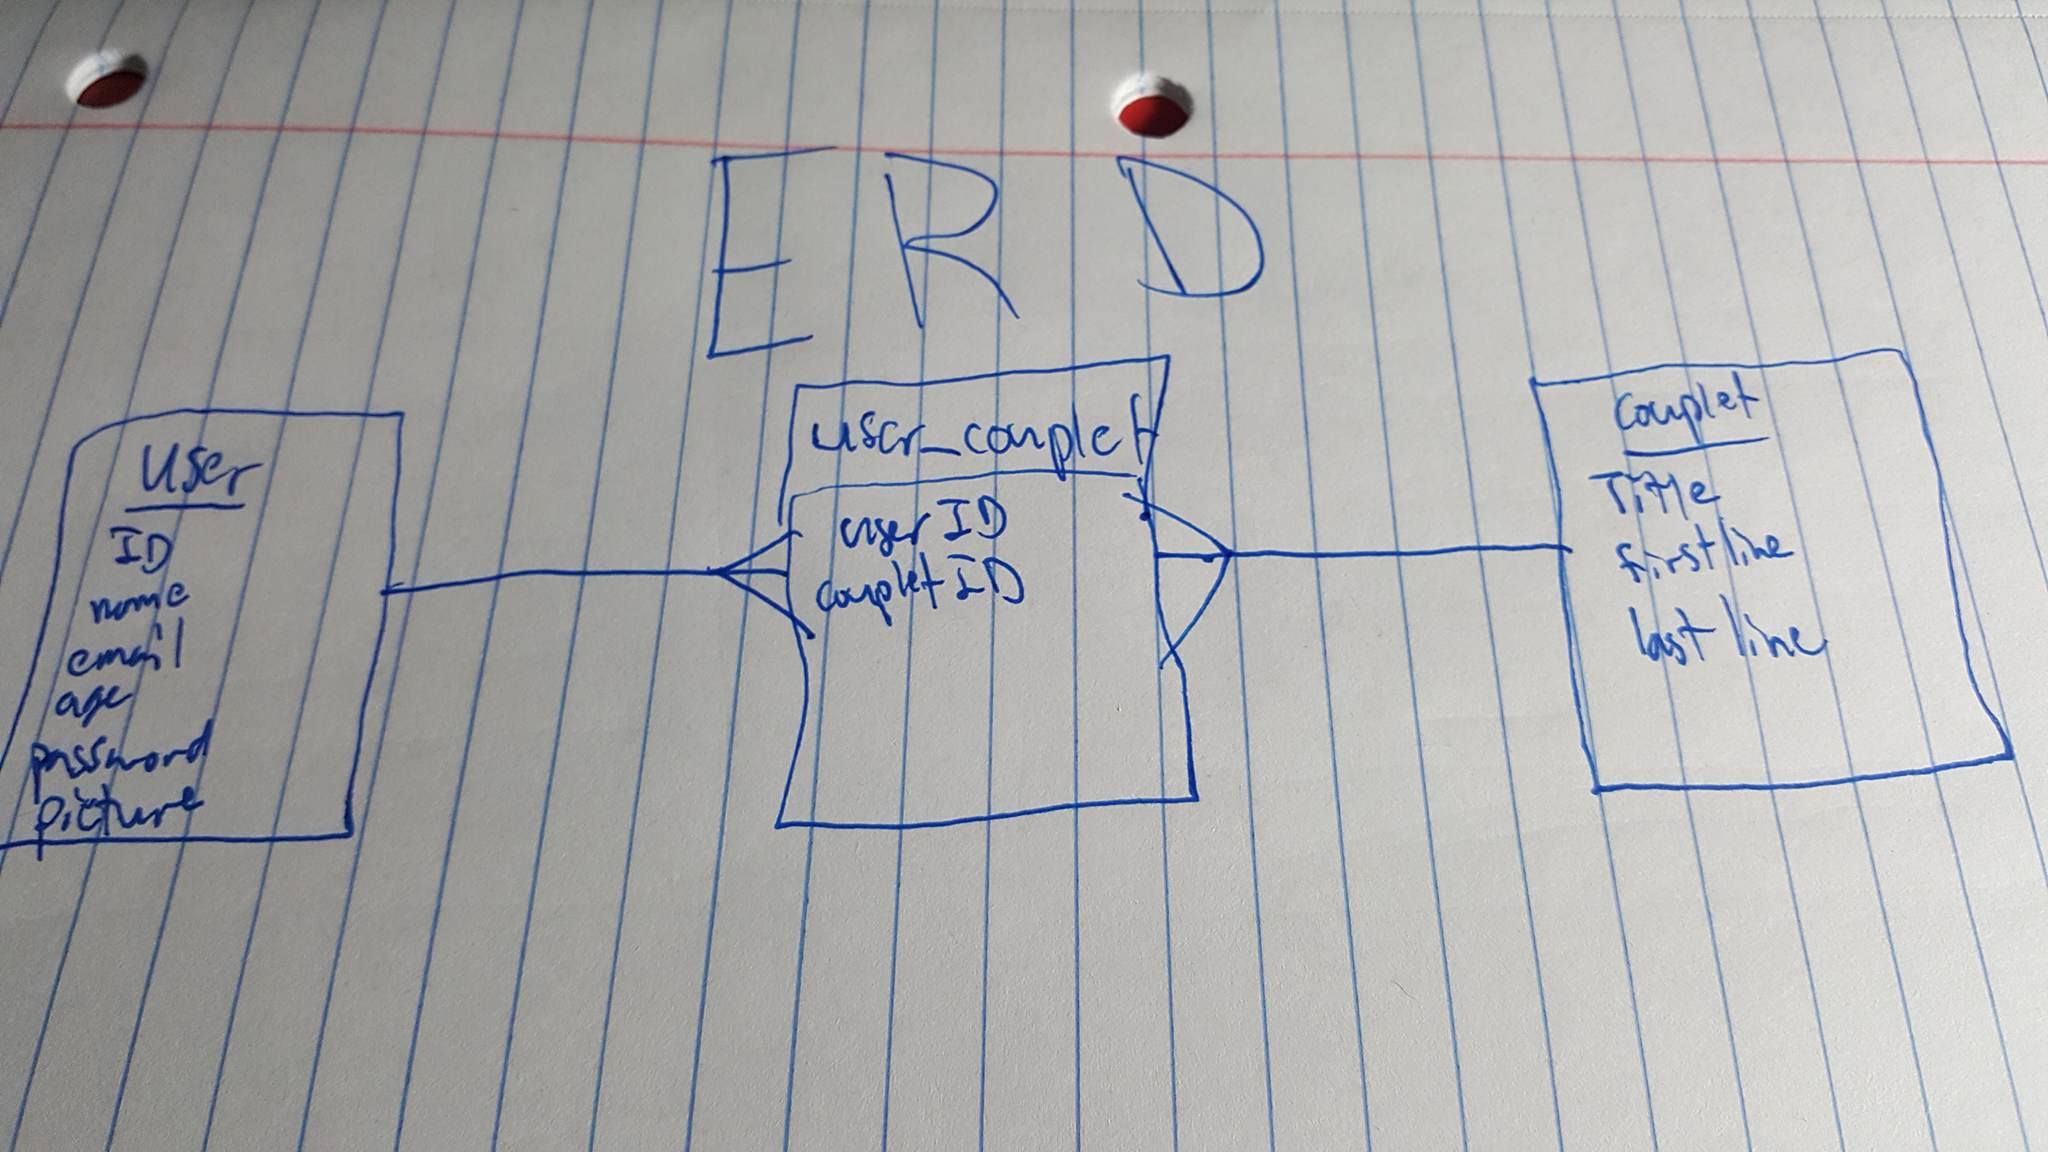 ERD
User
ID
name
email
age
password
picture
user_couplet
user ID
couplet ID
Couplet
Title
first line
last line